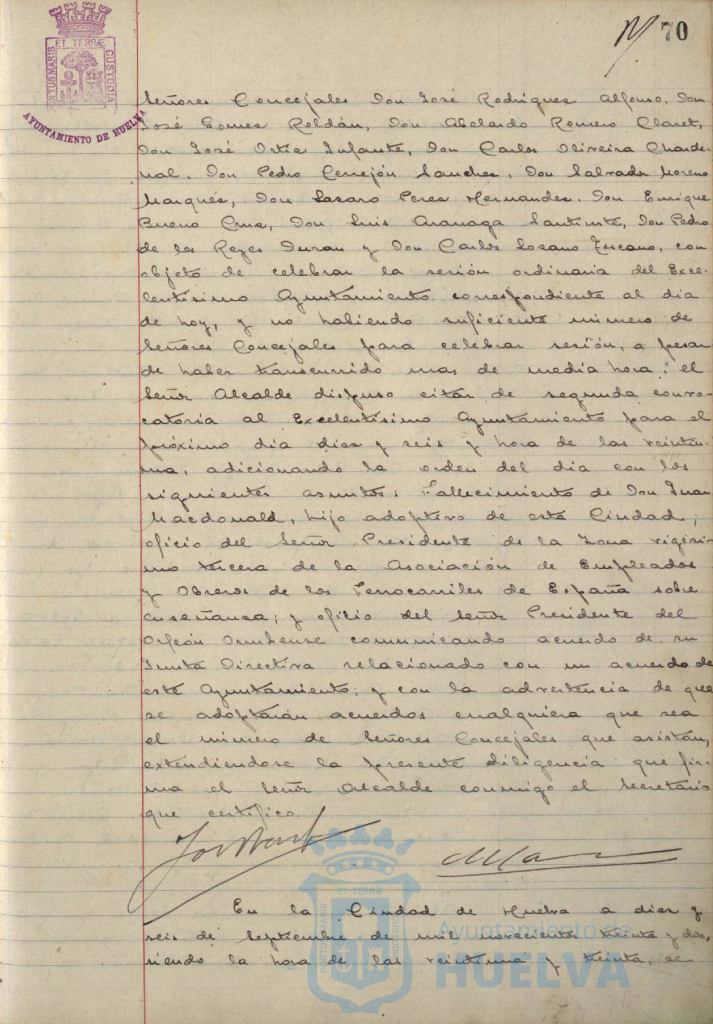 70
PORTUS MARIS ET TERRÆ CUSTODIA
AYUNTAMIENTO DE HUELVA
Señores Concejales Don José Rodríguez Alfonso, Don
José Gomez Roldán, Don Abelardo Romero Claret,
Don José Ortiz Infante, Don Carlos Oliveira Charde-
nal, Don Pedro Cerrejón Sanchez, Don Salvador Moreno
Marqués, Don Lazaro Perez Hernandez, Don Enrique
Bueno Cruz, Don Luis Aranaga Don Pedro
de los Reyes Duran y Don Carlos Lozano Toscano, con
objeto de celebrar la sesión ordinaria del Exce-
lentísimo Ayuntamiento correspondiente al dia
de hoy, y no habiendo suficiente número de
Señores Concejales para celebrar sesión, a pesar
de haber transcurrido mas de media hora; el
Señor Alcalde dispuso citar de segunda convo-
catoria al Excelentísimo Ayuntamiento para el
próximo dia diez y seis y hora de las veintiu-
na, adicionando la orden del dia con los
siguientes asuntos: Fallecimiento de Don Juan
Macdonald, hijo adoptivo de esta Ciudad;
oficio del Señor Presidente de la Zona vigési-
mo tercera de la Asociación de Empleados
y Obreros de los Ferrocarriles de España sobre
enseñanza; y oficio del Señor Presidente del
Orfeón Onubense comunicando acuerdo de su
Junta Directiva relacionado con un acuerdo de
este Ayuntamiento; y con la advertencia de que
se adoptarán acuerdos cualquiera que sea
el número de Señores Concejales que asistan,
extendiendose la presente diligencia que fir-
ma el Señor Alcalde conmigo el Secretario
que certifico.
En la Ciudad de Huelva a diez y
seis de Septiembre de mil novecientos treinta y dos,
siendo la hora de las veintiuna y treinta, se
Ayuntamiento de
HUELVA